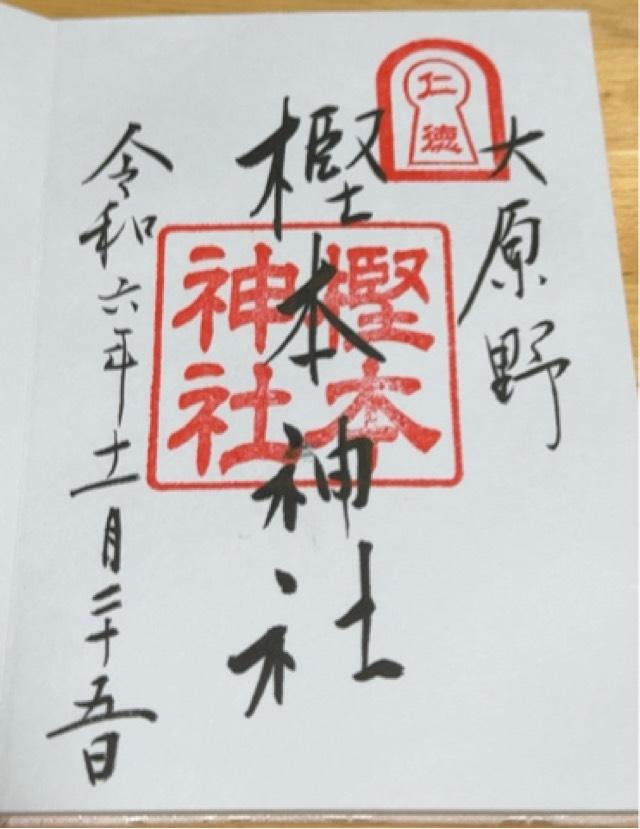 仁徳
大原野
樫本神社
樫本
神社
令和六年十一月二十五日